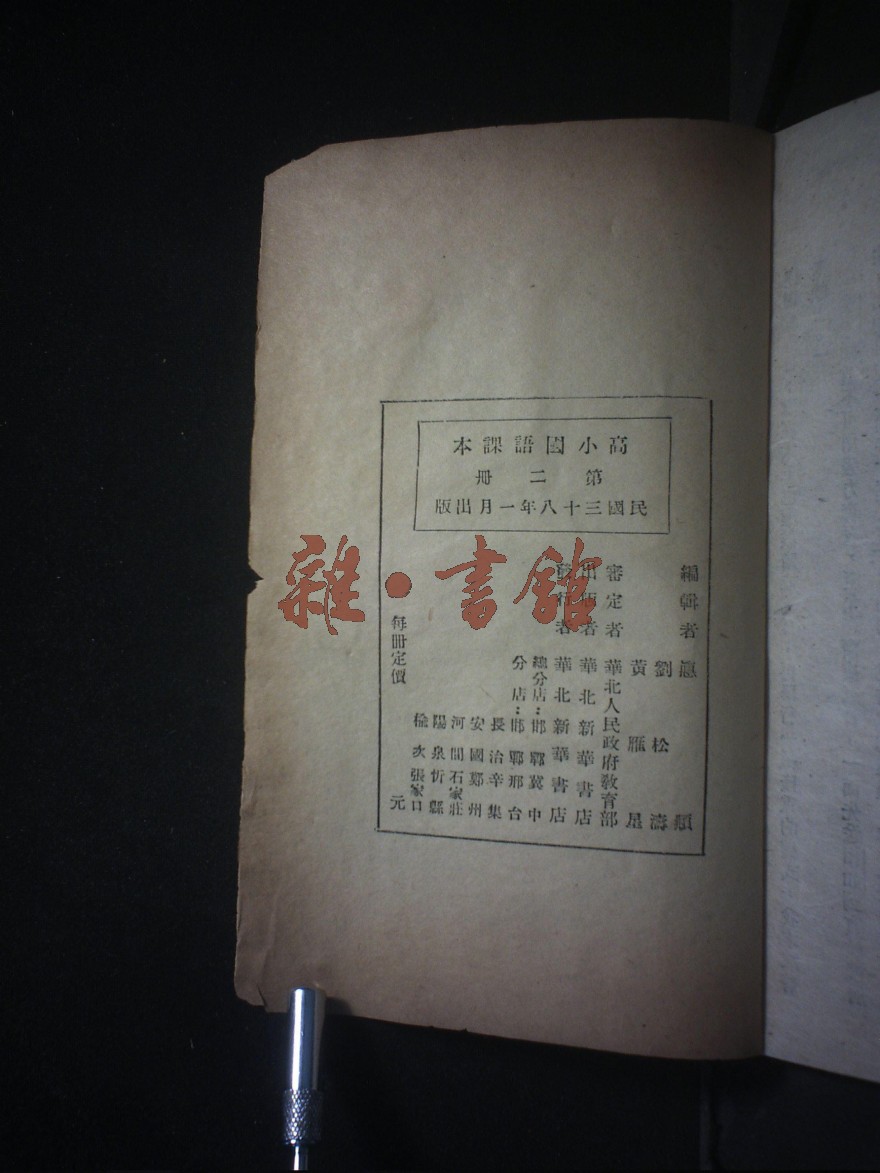 高小國語課本
第二冊
民國三十八年一月出版
編輯者 惠頎
劉松濤
黃雁星
審定者 華北人民政府教育部
出版者 華北新華書店
發行者 華北新華書店
總分店：邯鄲 冀中
分店：邯鄲 邢台
長治 辛集
安國 鄭州
河間 石家莊
陽泉 忻縣
榆次 張家口
每冊定價 元
雜·書館